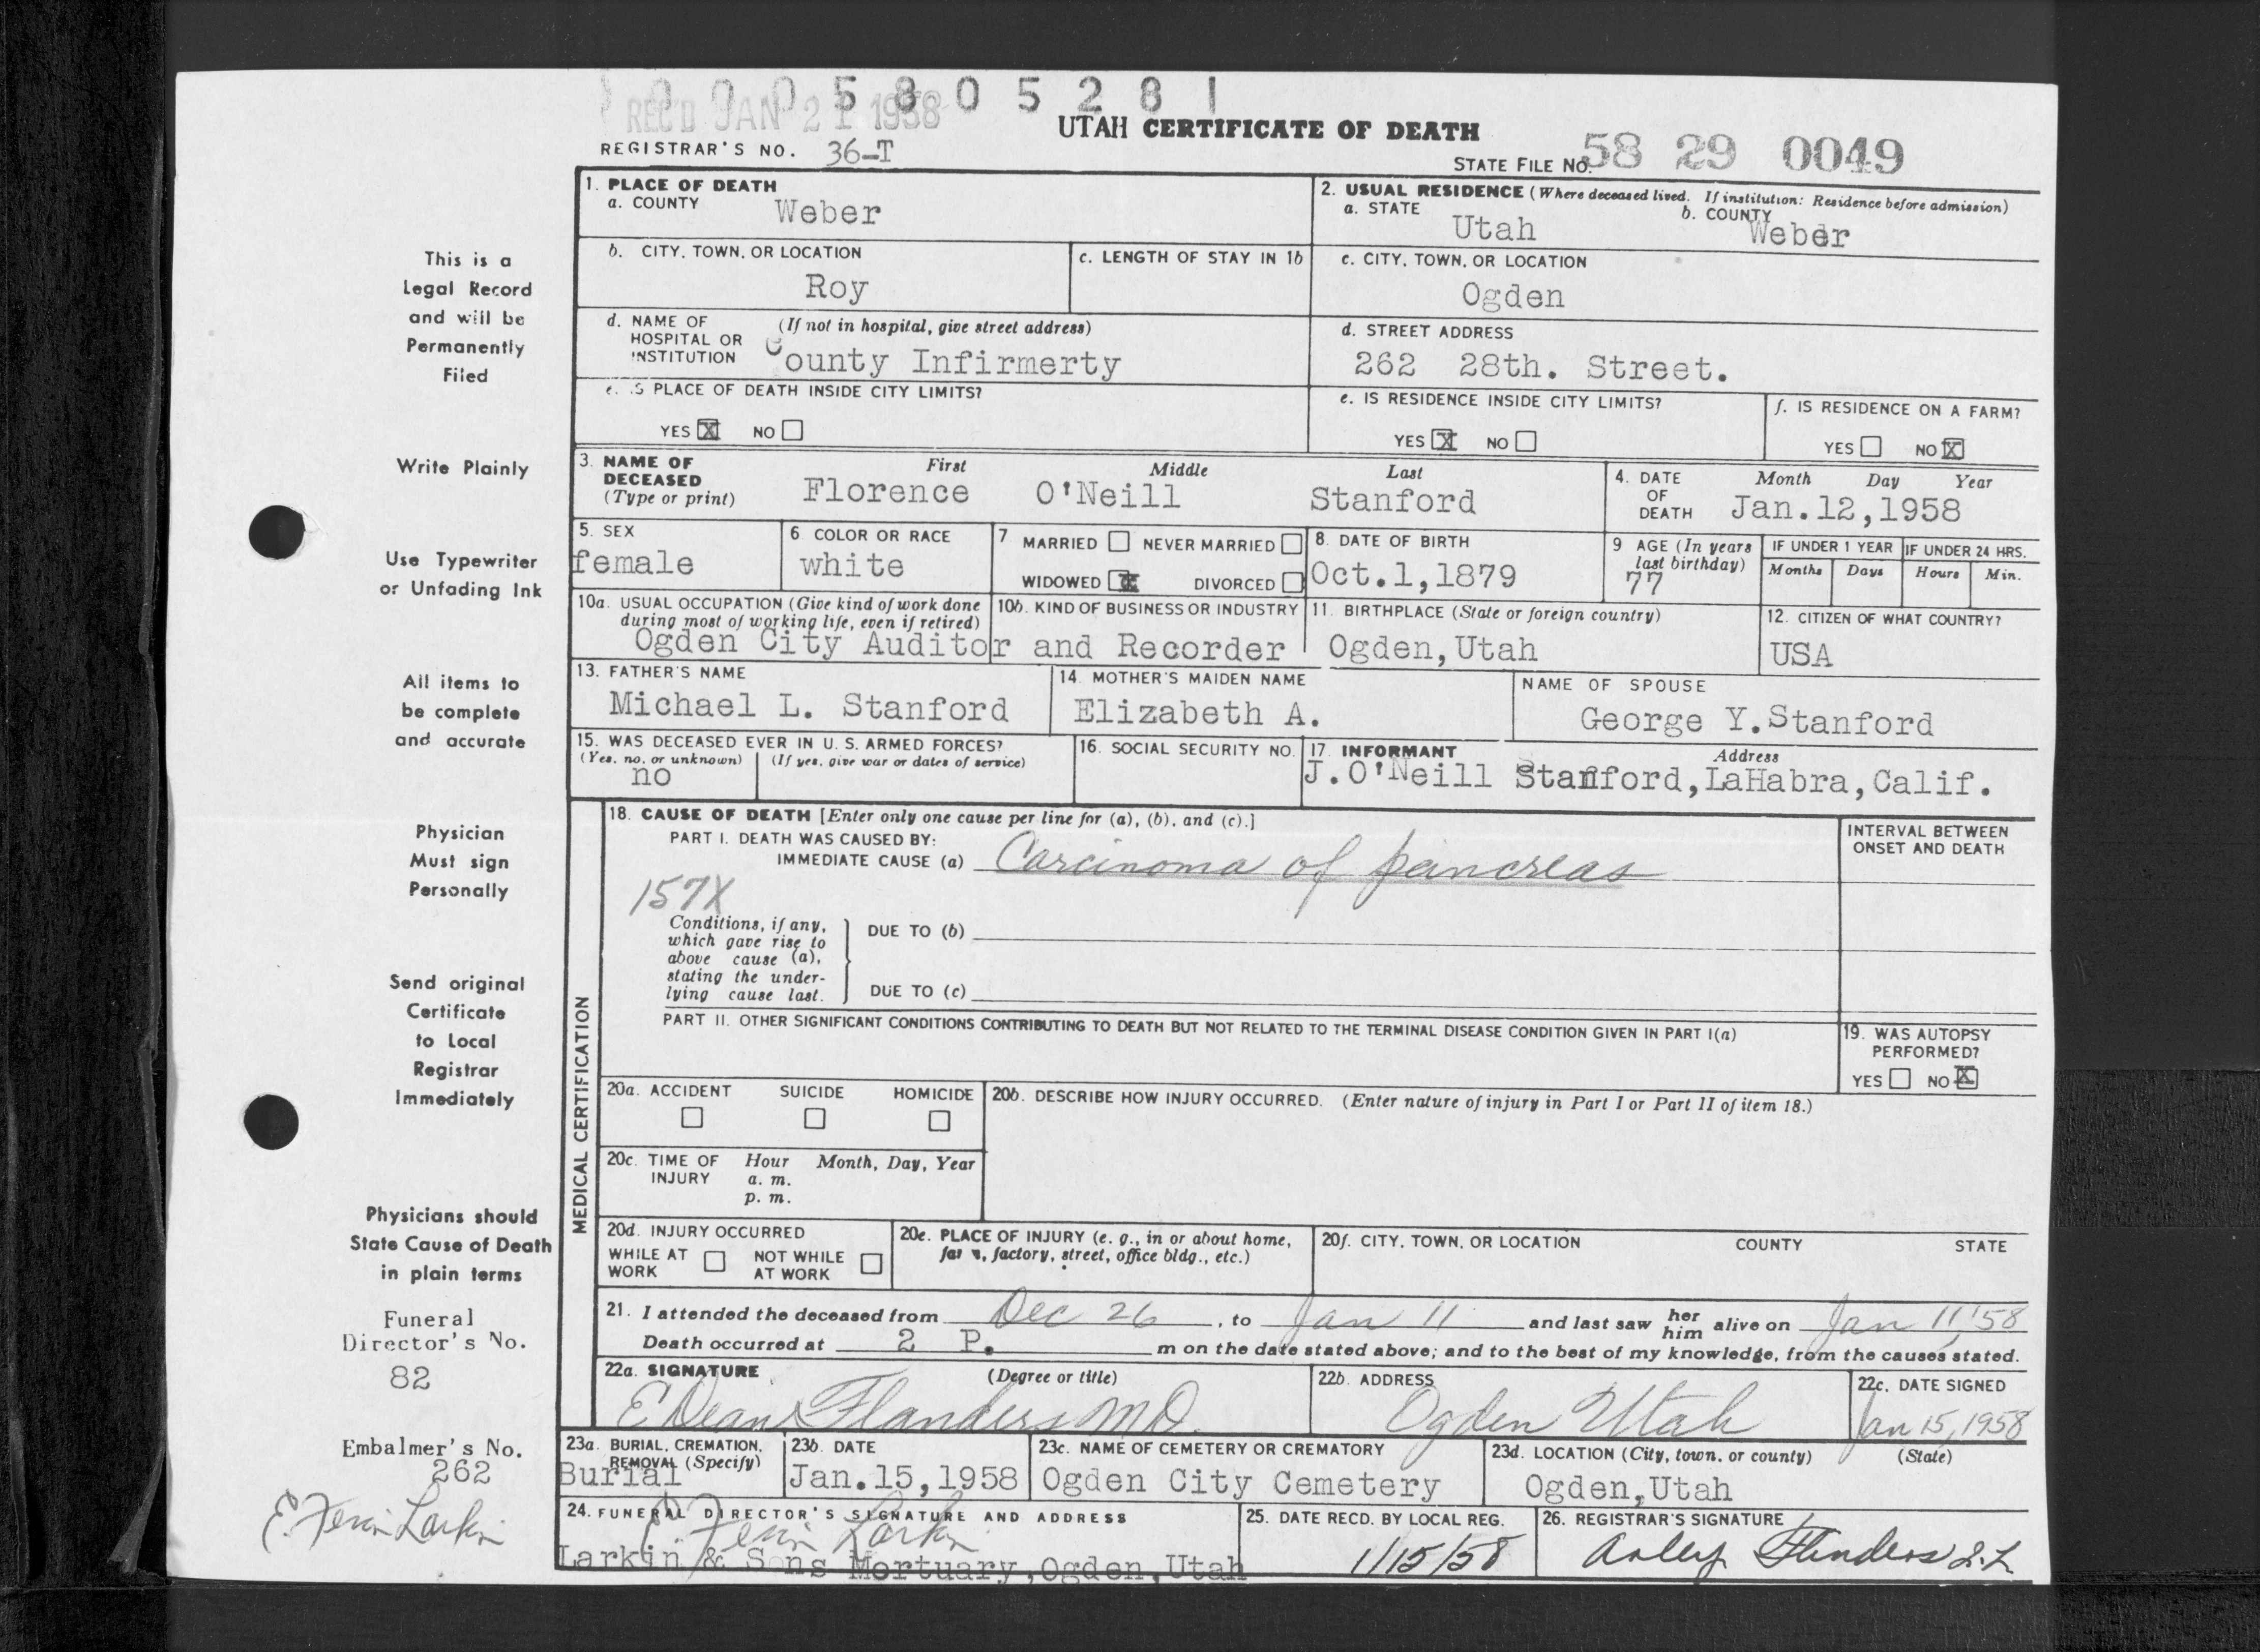 0 0 0 5 8 0 5 2 8 1
REC'D JAN 21 1958
UTAH CERTIFICATE OF DEATH
REGISTRAR'S NO. 36-T
STATE FILE NO. 58 29 0049
This is a
Legal Record
and will be
Permanently
Filed
Write Plainly
Use Typewriter
or Unfading Ink
All items to
be complete
and accurate
Physician
Must sign
Personally
Send original
Certificate
to Local
Registrar
Immediately
Physicians should
State Cause of Death
in plain terms
Funeral
Director's No.
82
Embalmer's No.
262
E. Larkin
1. PLACE OF DEATH
a. COUNTY Weber
2. USUAL RESIDENCE (Where deceased lived. If institution: Residence before admission)
a. STATE Utah b. COUNTY Weber
b. CITY, TOWN, OR LOCATION
Roy
c. LENGTH OF STAY IN 1b
c. CITY, TOWN, OR LOCATION
Ogden
d. NAME OF (If not in hospital, give street address)
HOSPITAL OR
INSTITUTION County Infirmerty
d. STREET ADDRESS
262 28th. Street.
e. IS PLACE OF DEATH INSIDE CITY LIMITS?
YES X NO
e. IS RESIDENCE INSIDE CITY LIMITS?
YES X NO
f. IS RESIDENCE ON A FARM?
YES NO X
3. NAME OF First Middle Last
DECEASED
(Type or print) Florence O'Neill Stanford
4. DATE Month Day Year
OF
DEATH Jan.12,1958
5. SEX
female
6 COLOR OR RACE
white
7 MARRIED NEVER MARRIED
WIDOWED X DIVORCED
8. DATE OF BIRTH
Oct.1,1879
9 AGE (In years
last birthday)
77
IF UNDER 1 YEAR
Months Days
IF UNDER 24 HRS.
Hours Min.
10a. USUAL OCCUPATION (Give kind of work done
during most of working life, even if retired)
10b. KIND OF BUSINESS OR INDUSTRY
Ogden City Auditor and Recorder
11. BIRTHPLACE (State or foreign country)
Ogden,Utah
12. CITIZEN OF WHAT COUNTRY?
USA
13. FATHER'S NAME
Michael L. Stanford
14. MOTHER'S MAIDEN NAME
Elizabeth A.
NAME OF SPOUSE
George Y.Stanford
15. WAS DECEASED EVER IN U. S. ARMED FORCES?
(Yes, no, or unknown) (If yes, give war or dates of service)
no
16. SOCIAL SECURITY NO.
17. INFORMANT Address
J.O'Neill Stanford,LaHabra,Calif.
MEDICAL CERTIFICATION
18. CAUSE OF DEATH [Enter only one cause per line for (a), (b), and (c).]
PART I. DEATH WAS CAUSED BY:
IMMEDIATE CAUSE (a) Carcinoma of pancreas
INTERVAL BETWEEN
ONSET AND DEATH
157X
Conditions, if any,
which gave rise to
above cause (a),
stating the under-
lying cause last.
DUE TO (b)
DUE TO (c)
PART II. OTHER SIGNIFICANT CONDITIONS CONTRIBUTING TO DEATH BUT NOT RELATED TO THE TERMINAL DISEASE CONDITION GIVEN IN PART I(a)
19. WAS AUTOPSY
PERFORMED?
YES NO X
20a. ACCIDENT SUICIDE HOMICIDE
20b. DESCRIBE HOW INJURY OCCURRED. (Enter nature of injury in Part I or Part II of item 18.)
20c. TIME OF Hour Month, Day, Year
INJURY a. m.
p. m.
20d. INJURY OCCURRED
WHILE AT NOT WHILE
WORK AT WORK
20e. PLACE OF INJURY (e. g., in or about home,
farm, factory, street, office bldg., etc.)
20f. CITY, TOWN, OR LOCATION COUNTY STATE
21. I attended the deceased from Dec 26, to Jan 11 and last saw her him alive on Jan 11, '58
Death occurred at 2 P. m on the date stated above; and to the best of my knowledge, from the causes stated.
22a. SIGNATURE (Degree or title)
E Dean Flanders MD.
22b. ADDRESS
Ogden Utah
22c. DATE SIGNED
Jan 15, 1958
23a. BURIAL, CREMATION,
REMOVAL (Specify)
Burial
23b. DATE
Jan.15,1958
23c. NAME OF CEMETERY OR CREMATORY
Ogden City Cemetery
23d. LOCATION (City, town, or county) (State)
Ogden,Utah
24. FUNERAL DIRECTOR'S SIGNATURE AND ADDRESS
E. Larkin
Larkin & Sons Mortuary,Ogden,Utah
25. DATE RECD. BY LOCAL REG.
1/15/58
26. REGISTRAR'S SIGNATURE
Flinders